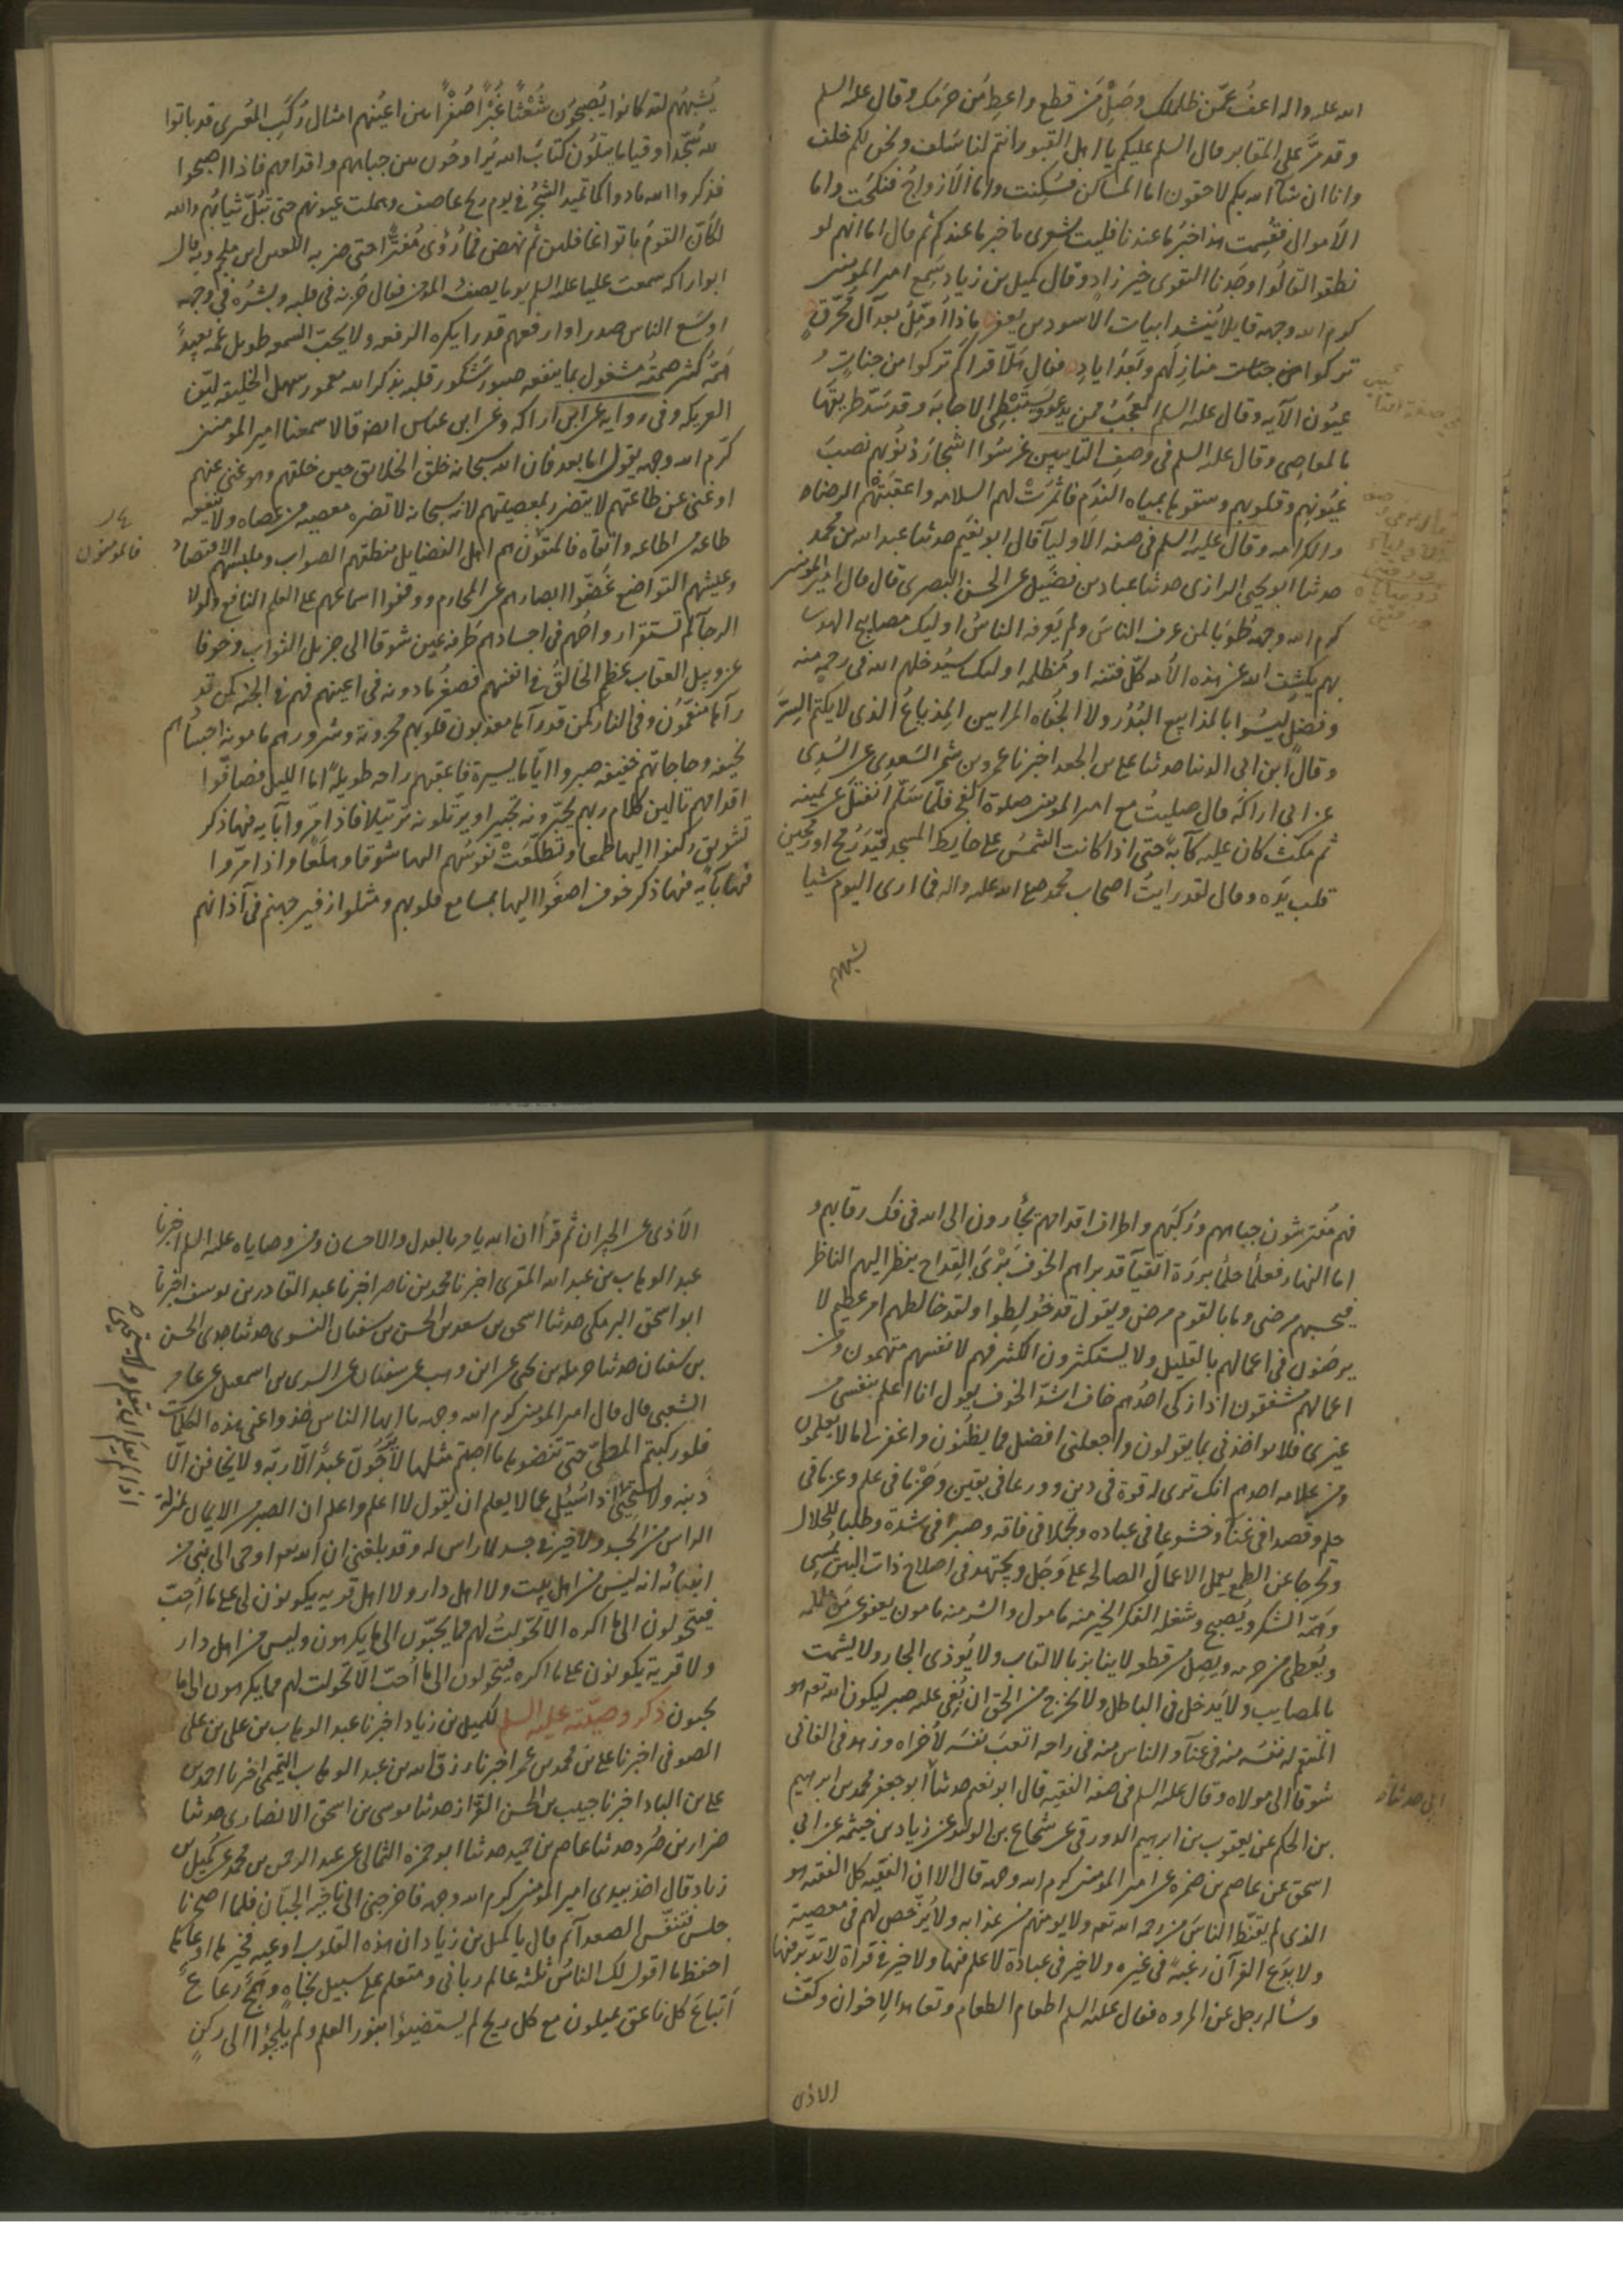 الله عليه واله اعفُ عمّن ظلمك وصِلْ مَن قطعك واعطِ مَن حرمك وقال عليه السلم
وقد مرّ على المقابر قال السلم عليكم يا اهل القبور انتم لنا سَلف ونحن لكم خلف
وانا ان شآ الله بكم لاحقون اما المساكن فسُكِنت واما الازواج فنُكحَت واما
الاموال فقُسِمت هذا خبرُ ما عندنا فليت شعرى ما خبر ما عندكم ثم قال اما انهم لو
نطقوا لقالُوا وجَدنا التقوى خير زادٍ وقال كميل بن زياد سَمِع امير المومنين
كرم الله وجهه قايلا يُنشد ابيات الاسود بن يعفر ماذا اُؤمّلُ بعد آل مُحَرّقٍ
تركوا منازلهم وبَعْدَ ايادِ فقال هَلّا قراتم كم تركوا من جنات و
عيُون الآيه وقال عليه السلم العجَبُ ممن يدعو ويَستَبْطِئ الاجابَة وقد سَدّ طريقها
بالمعاصِى وقال عليه السلم فى وصف التايبين غرسُوا اشجار ذنوبهم نصبَ
عيُونِهم وقلوبهم وسقوها بمياه الندَم فاثمرَتْ لهم السلامه واعقبَتْهُم الرضاه
والكرامه وقال عليه السلم فى صفه الاوليآ قال ابو نعَيم حدثنا عبد الله بن محمد
حدثنا ابو يحيى الرازى حدثنا عباد بن فضَيل عن الحسن البصرى قال قال امير المومنين
كرم الله وجهه طُوبَا لمن عرف الناسَ ولم يَعرفه الناسُ اوليك مصابيح الهدى
بهم يكشِف الله عن هذه الامه كلّ فتنه او مُظلمه اوليك سيُدخلهم الله فى رحمه منه
وفضلٍ ليسُوا بالمذاييع البُذُر ولا الجُفاه المرايين المِذيَاعُ الذى لا يكتم السِرَّ
وقال ابن ابى الدنيا حدثنا على بن الجعد اخبرنا عمرو بن شمر السَعدى عن السُدى
عن ابى اراكة قال صليتُ مع امير المومنين صلوة الفجر فلمّا سَلّم انفتَل عن يمينه
ثم مكث كان عليه كآبَة حتى اذا كانت الشمسُ على حايط المسجد قَيد رُمح اورمحين
قلب يَده وقال لقد رايتُ اصحاب محمد صلى الله عليه واله فما ارى اليوم شيا
يشبههم
يُشبهُهُم لقد كانوا يُصبحُون شُعْثًا غُبْرًا صُفرًا بين اعيُنهم امثال رُكَبِ المِعْزى قد باتوا
لله سُجّدا وقياما يتلُون كتابَ الله يُراوحُون بين جباههم واقدامهم فاذا اصبحوا
فذكروا الله مادوا كما تميد الشجرُ فى يوم ريح عاصف وهملت عيونهم حتى تبُلّ ثيابهُم والله
لكأنّ القومَ باتوا غافلين ثم نهض فما رُؤى مُفتَرًّا حتى ضربه اللعين ابن ملجم وبه قال
ابو اراكه سمعت عليا عليه السلم يوما يصفُ المؤمن فقال حُزنه فى قلبه وبشرُه فى وجهه
اوسَع الناس صدرا وارفعهم قدرا يكره الرفعه ولا يحب السمعه طويل غمّه بعيدٌ
همّه كثيرٌ صمتُه مشغول بما ينفعه صبور شكور قلبه بذكر الله معمور سهل الخليقه ليّن
العريكه وفى روايه عن ابى اراكه وعن ابن عباس ايضا قالا سمعنا امير المومنين
كرّم الله وجهه يقول اما بعد فان الله سبحانه خلق الخلايق حين خلقهم وهو غنى عنهم
او غنى عن طاعتهم لا يتضرر بمعصيتهم لانه سبحانه لا تضره معصيه من عصاه ولا ينفعه
طاعه من اطاعه واتقاه فالمتقون هم اهل الفضايل منطقهم الصواب وملبسهم الاقتصادُ
وعيشهم التواضع غضّوا ابصارهم عن المحارم ووقفوا اسماعهم على العلم النافع ولولا
الرجآ لم تستقر ارواحُهم فى اجسادهم طرفه عين شوقا الى جزيل الثواب وخوفا
عن وبيل العقاب عظم الخالقُ فى انفسهم فصغُر ما دونه فى اعينهم فهم فى الجنه كمن قد
رآها منعّمُون وفى النار كمن قد رآها معذبون قلوبهم محزونة وشرورهم مامونة اجسادهم
نحيفه وحاجاتهم خفيفه صبروا اياما يسيرة فاعقبهم راحه طويلة اما الليل فصافّوا
اقدامهم تالين كلام ربهم يحبّرونه تحبيرا ويرتلونه ترتيلا فاذا مرّوا بآيه فيها ذكر
تشويق ركنوا اليها طمعا وتطلّعَتْ نفوسُهم اليها شوقا وهلعًا واذا مرّوا
بآية فيها ذكر خوف اصغَوا اليها بمسامع قلوبهم ومثلوا زفير جهنم فى آذانهم
فالمومنون
فهم مُفترشون جباههم ورُكبَهم واطراف اقدامهم يجأرون الى الله فى فك رقابهم و
اما النهار فعلمأ حلمأ بررَة اتقيآ قد براهم الخوف بَرْىَ القِداح ينظر اليهم الناظر
فيحسبهم مرضى وما بالقوم مرض ويقول قد خُولِطوا ولقد خالطهم امر عظيم لا
يرضَون فى اعمالهم بالقليل ولا يستكثرون الكثير فهم لانفسهم متهمون ومن
اعمالهم مشفقون اذا زكى احدُهم خاف اشدّ الخوف يقول انا اعلم بنفسى من
غيرى فلا تواخذنى بما يقولون واجعلنى افضل مما يظنون واغفر لى ما لا يعلمون
ومن علامه احدهم انك ترى له قوة فى دين وورعا فى يقين وحَزْما فى علم وعزما فى
حلم وقصدا فى غنآ وخشوعا فى عباده وتجملا فى فاقه وصبرا فى شدة وطلبا للحلال
وتحرجا عن الطمع يعمل الاعمال الصالحه على وَجَل ويجتهد فى اصلاح ذات البين يُمسى
وهَمّه الشكر ويُصبح وشغله الفكر الخير منه مامول والشر منه مامون يعفو عمّن ظلمه
ويُعطى من حرمه ويصِل من قطعه لا ينابز بالالقاب ولا يُوذى الجار ولا يشمت
بالمصايب ولا يَدخل فى الباطل ولا يخرج من الحق ان بُغِى عليه صبر ليكون الله تعالى هو
المنتقم له نفسُه منه فى عنآ والناس منه فى راحه اتعبَ نفسَه لأخراه وزهد فى الفانى
شوقا الى مولاه وقال عليه السلم فى صفه الفقيه قال ابو نعيم حدثنا ابو جعفر محمد بن ابرهيم
بن الحكم عن يعقوب بن ابرهيم الدورقى عن شجاع بن الوليد عن زياد بن خيثمه عن ابى
اسحق عن عاصم بن ضمره عن امير المومنين كرم الله وجهه قال الا ان الفقيه كل الفقيه هو
الذى لم يقنّط الناسَ من رحمه الله تعه ولا يومنهم من عذابه ولا يُرخّص لهم فى معصيته
ولا يدَع القرآن رغبَةً فى غيره ولا خير فى عبادة لا علم فيها ولا خير فى قراة لا تدبر فيها
وساله رجل عن المروه فقال عليه السلم اطعام الطعام وتعاهد الاخوان وكفّ
الاذى
الاَذى عن الجيران ثم قرأ ان الله يامر بالعدل والاحسان ومن وصاياه عليه السلم اخبرنا
عبد الوهاب بن عبد الله المقرى اخبرنا محمد بن ناصر اخبرنا عبد القادر بن يوسف اخبرنا
ابو اسحق البرمكى حدثنا اسحق بن سعد بن الحسن بن سفيان النسوى حدثنا جدى الحسن
بن سفيان حدثنا حرمله بن يحيى عن ابن وهب عن سفيان عن السدى بن اسمعيل عن عامر
الشعبى قال قال امير المومنين كرم الله وجهه يا ايها الناس خذوا عنى هذه الكلمات
فلو ركبتم المطىّ حتى تنضوها ما اصبتم مثلها لا يرجُونّ عبدٌ الّا ربّه ولا يخافن الّا
ذنبه ولا يستحِى اذا سُئِل عما لا يعلم ان يقول لا اعلم واعلم ان الصبر من الايمان بمنزلة
الراس من الجسد ولا خير فى جسد لا راس له وقد بلغنى ان الله تعه اوحى الى نبى من
انبيائه انه ليسَ من اهل بيت ولا اهل دار ولا اهل قريه يكونون لى على ما اُحِبّ
فيتحولون الى ما اكره الا تحولتُ لهم مما يحبّون الى ما يكرهون وليس من اهل دار
ولا قرية يكونون على ما اكره فيتحولون الى ما اُحبّ الّا تحولت لهم مما يكرهون الى ما
يحبون ذكر وصيّته عليه السلم لكميل بن زياد اخبرنا عبد الوهاب بن على بن على
الصوفى اخبرنا على بن محمد بن عمر اخبرنا رزق الله بن عبد الوهاب التميمى اخبرنا احمد بن
على بن الباد اخبرنا حبيب بن الحسن القزاز حدثنا موسى بن اسحق الانصارى حدثنا
ضرار بن صُرد حدثنا عاصم بن حميد حدثنا ابو حمزه الثمالى عن عبد الرحمن بن محمد عن كميل بن
زياد قال اخذ بيدى امير المومنين كرم الله وجهه فاخرجنى الى ناحية الجبّان فلما اصحرنا
جلس فتنفّس الصعدآ ثم قال يا كميل بن زياد ان هذه القلوب اوعيه فخيرها اوعاها
احفظ ما اقول لك الناسُ ثلثه عالم ربانى ومتعلم على سبيل نجاهٍ وهمجٌ رعاعٌ
اَتباعُ كل ناعق يميلون مع كل ريح لم يستضيئوا بنور العلم ولم يلجؤا الى ركنٍ